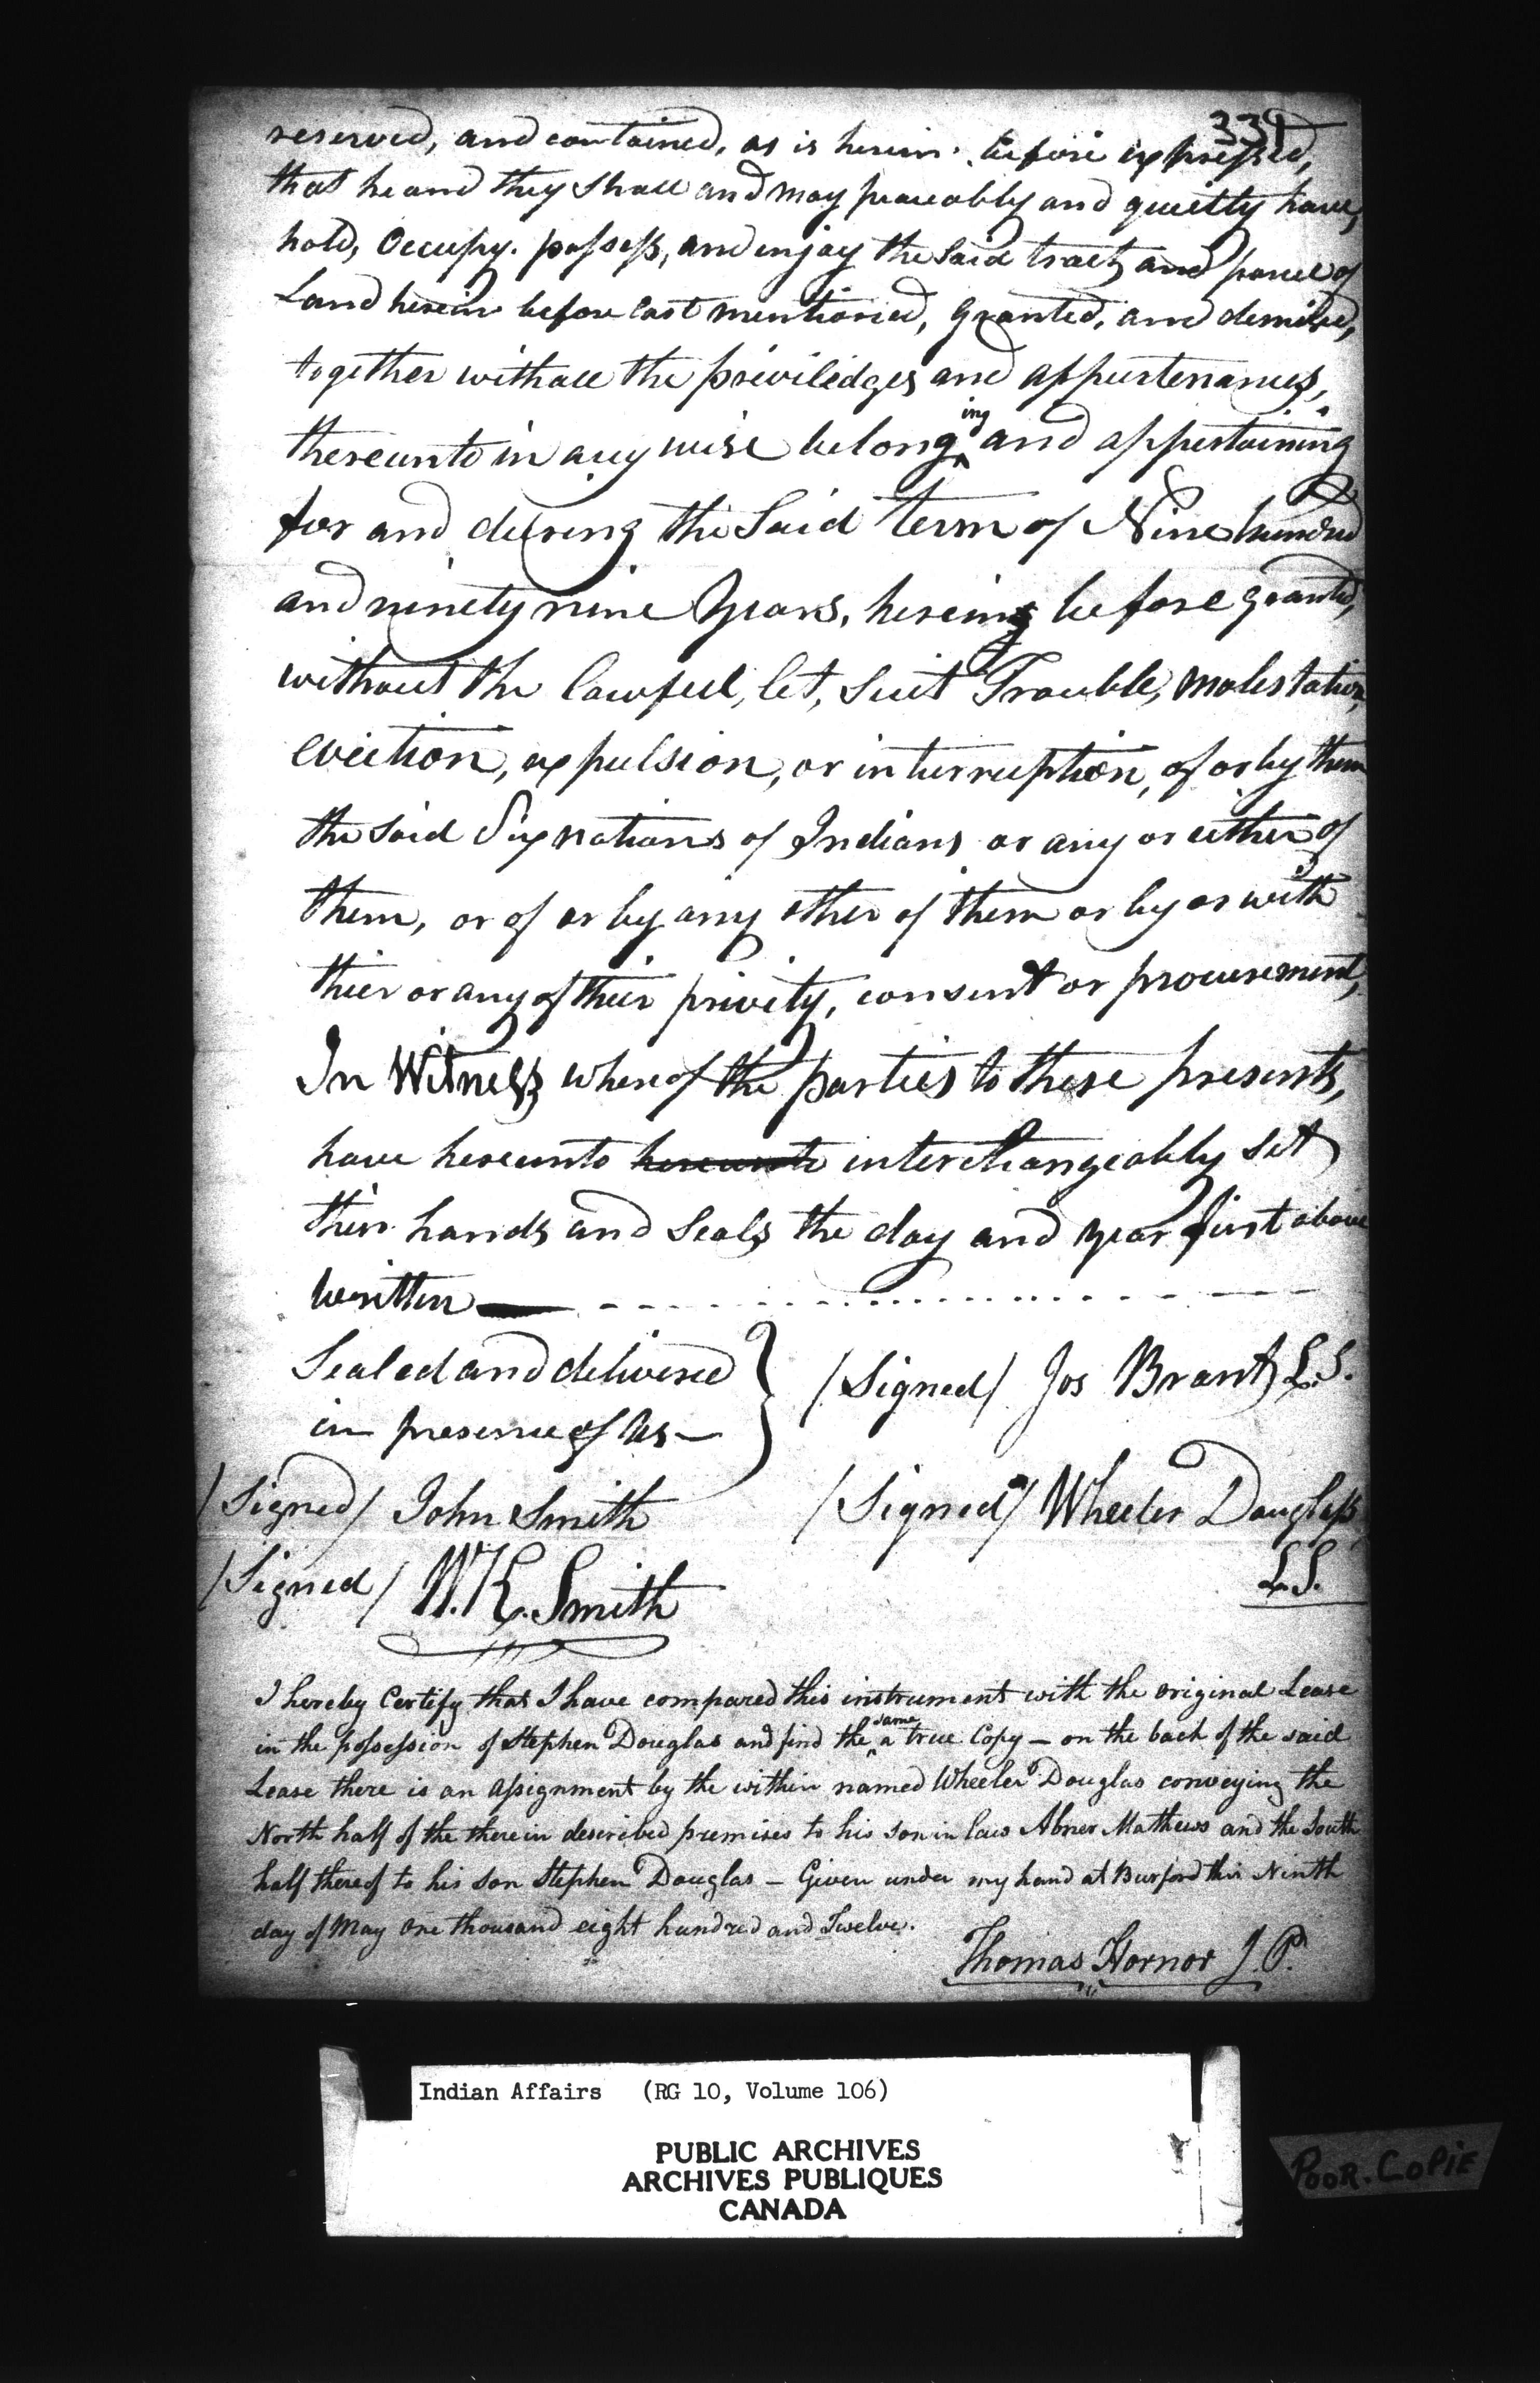 339
reserved, and contained, as is herein before expressed,
that he and they shall and may peaceably and quietly have,
hold, Occupy. possess, and enjoy the Said tract and parcel of
Land herein before last mentioned, granted, and demised,
together with all the priviledges and appurtenances,
thereunto in any wise belonging and appertaining
for and during the Said term of Nine hundred
and ninety nine Years, herein before granted,
without the lawful, let, Suit Trouble, molestation,
eviction, expulsion, or interruption, of or by them
the Said Six nations of Indians or any or either of
them, or of or by any other of them or by or with
thier or any of their privity, consent or procurement,
In Witness whereof the parties to these presents,
have hereunto hereunto interchangeably Set
their hands and Seals the day and year first above
written
Sealed and delivered
in presence of us —
/Signed/ Jos Brant L.S.
/Signed/ John Smith
/Signed/ Wheeler Douglass
L.S.
/Signed/ W. K. Smith
I hereby Certify that I have compared this instrument with the original Lease
in the possession of Stephen Douglas and find the same a true Copy — on the back of the said
Lease there is an assignment by the within named Wheeler Douglas conveying the
North half of the therein described premises to his son in law Abner Mathews and the South
half thereof to his son Stephen Douglas — Given under my hand at Burford this Ninth
day of May One thousand eight hundred and Twelve.
Thomas Hornor J. P.
Indian Affairs (RG 10, Volume 106)
PUBLIC ARCHIVES
ARCHIVES PUBLIQUES
CANADA
POOR. COPIE